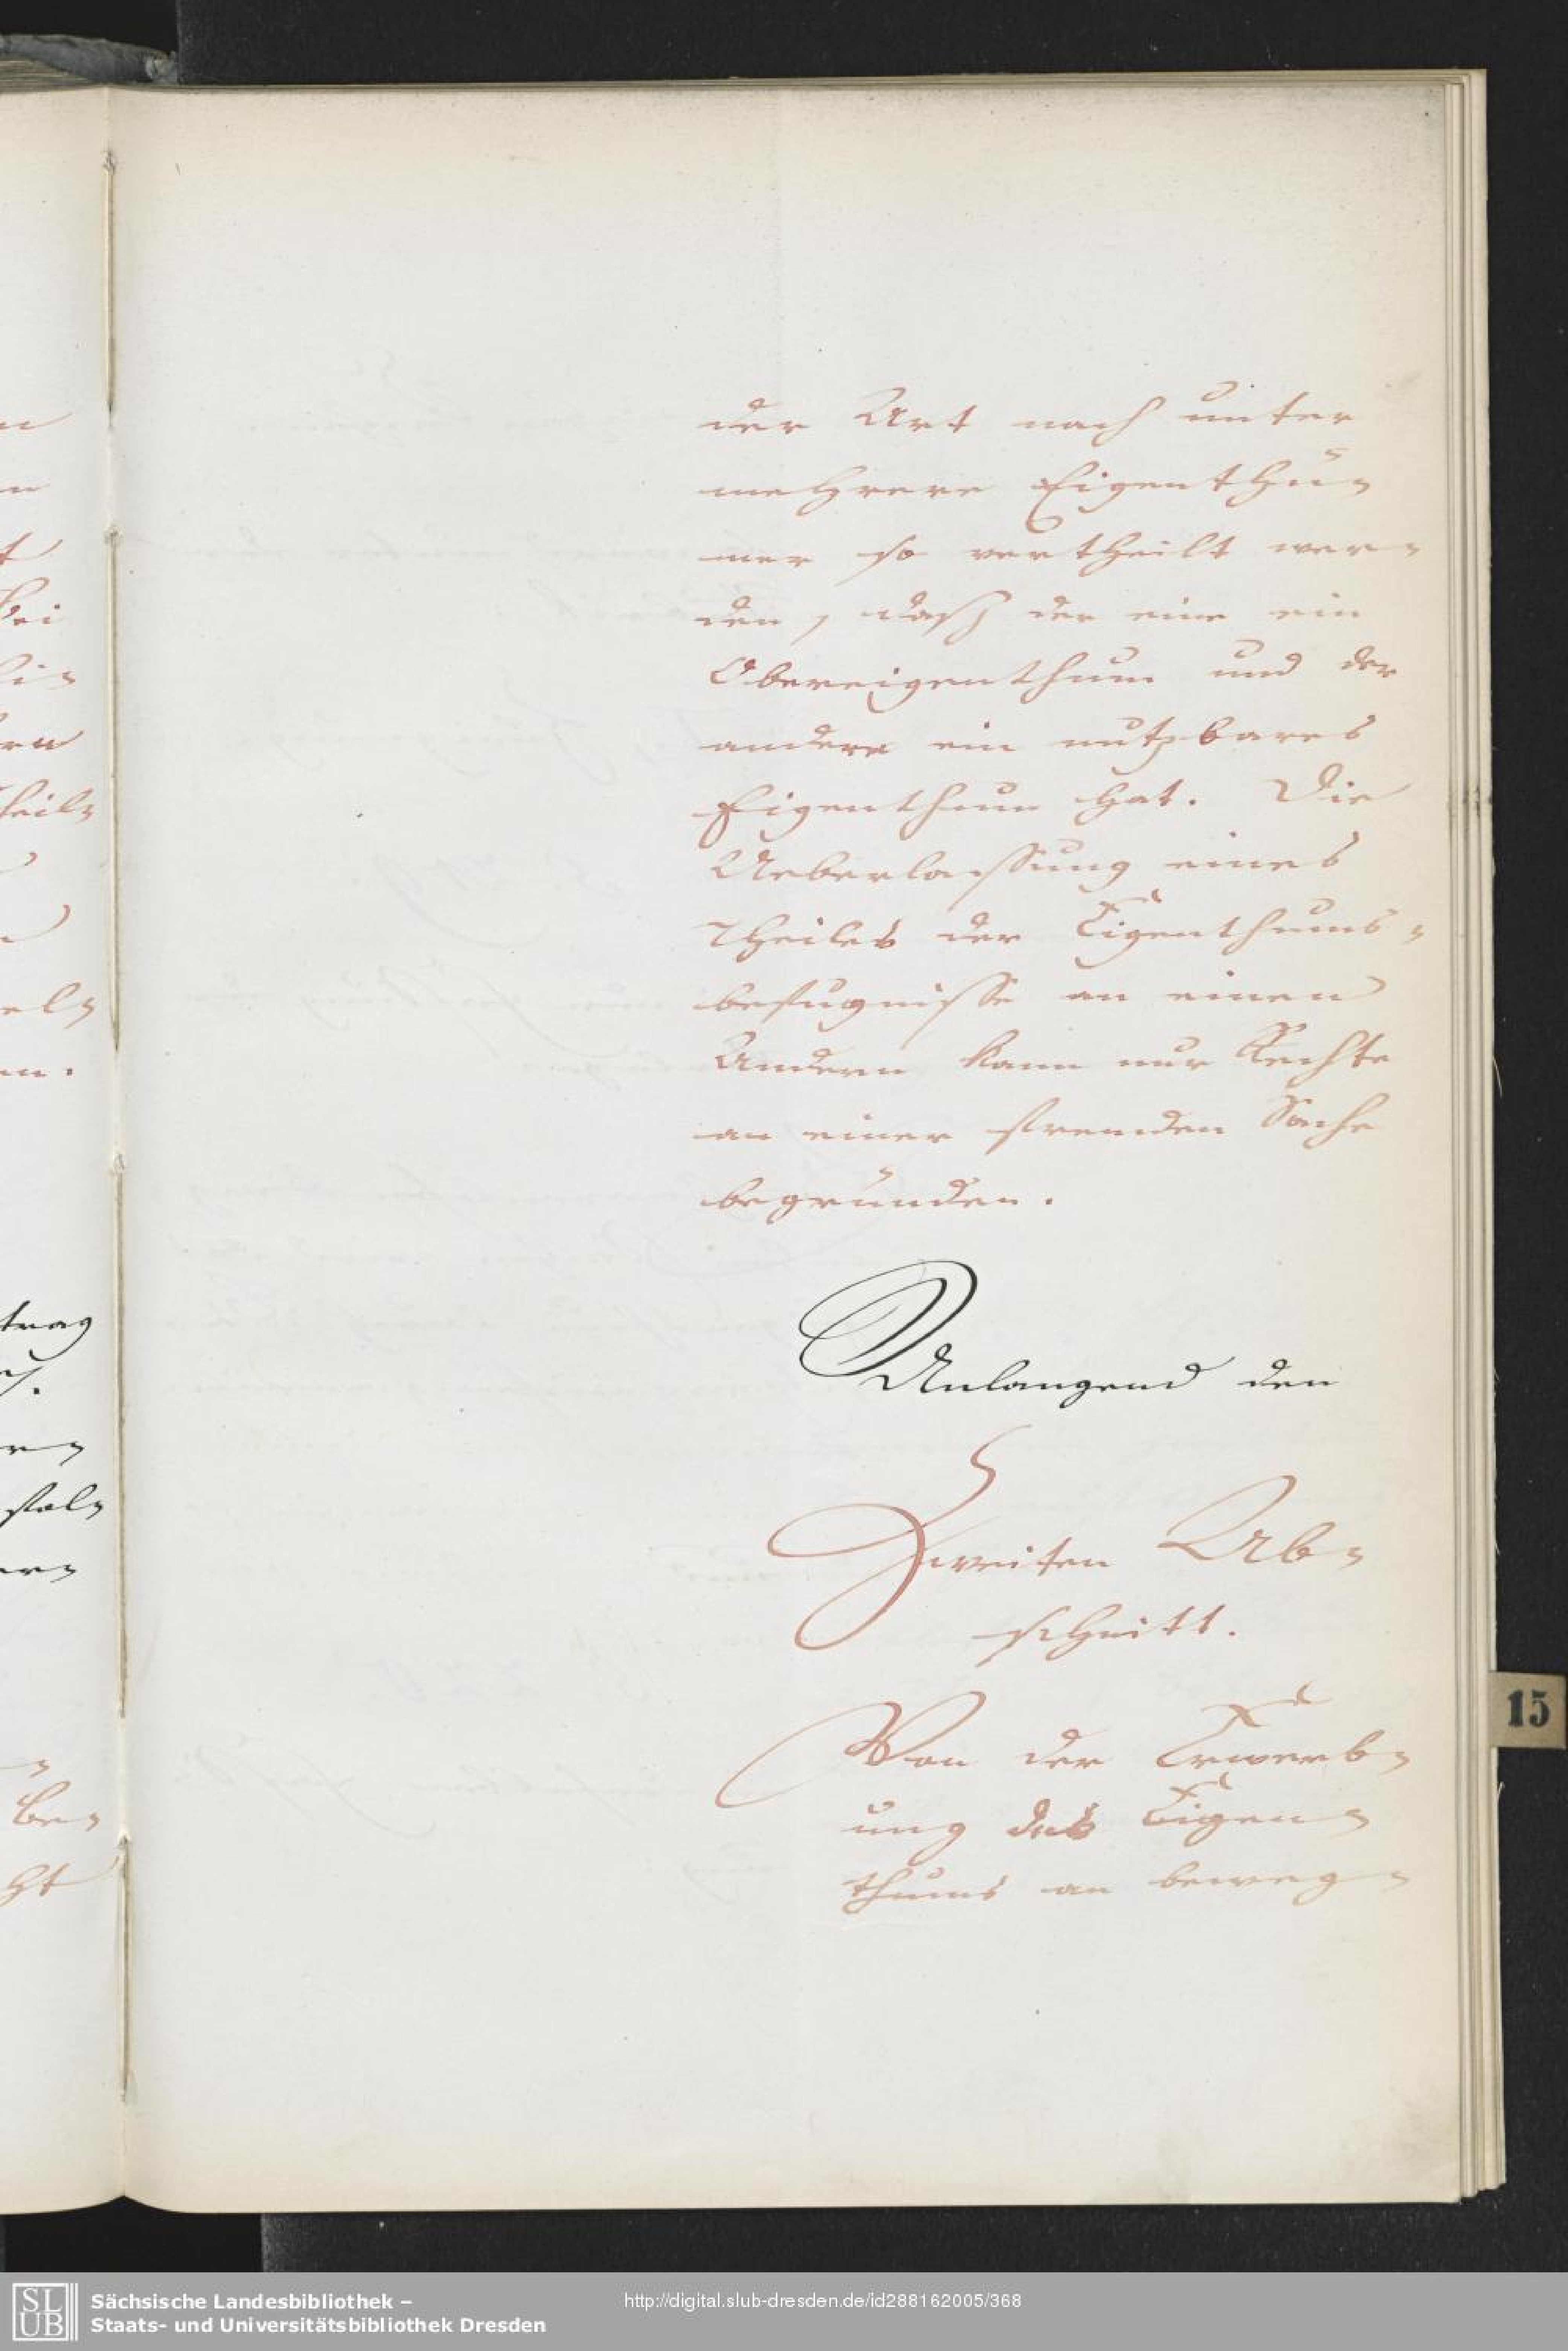 der Art nach unter
mehrere Eigenthü-
mer so vertheilt wer-
den, daß der eine ein
Obereigenthum und der
andere ein nutzbares
Eigenthum hat. Die
Ueberlassung eines
Theiles der Eigenthums-
befugnisse an einen
Andern kann nur Rechte
an einer fremden Sache
begründen.
Anlangend den
Zweiten Ab-
schnitt.
Von der Erwerb-
ung des Eigen-
thums an beweg-
15
SLUB
Sächsische Landesbibliothek –
Staats- und Universitätsbibliothek Dresden
http://digital.slub-dresden.de/id288162005/368